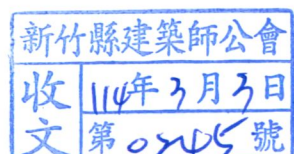 新竹縣建築師公會
收文
114年3月3日
第0245號